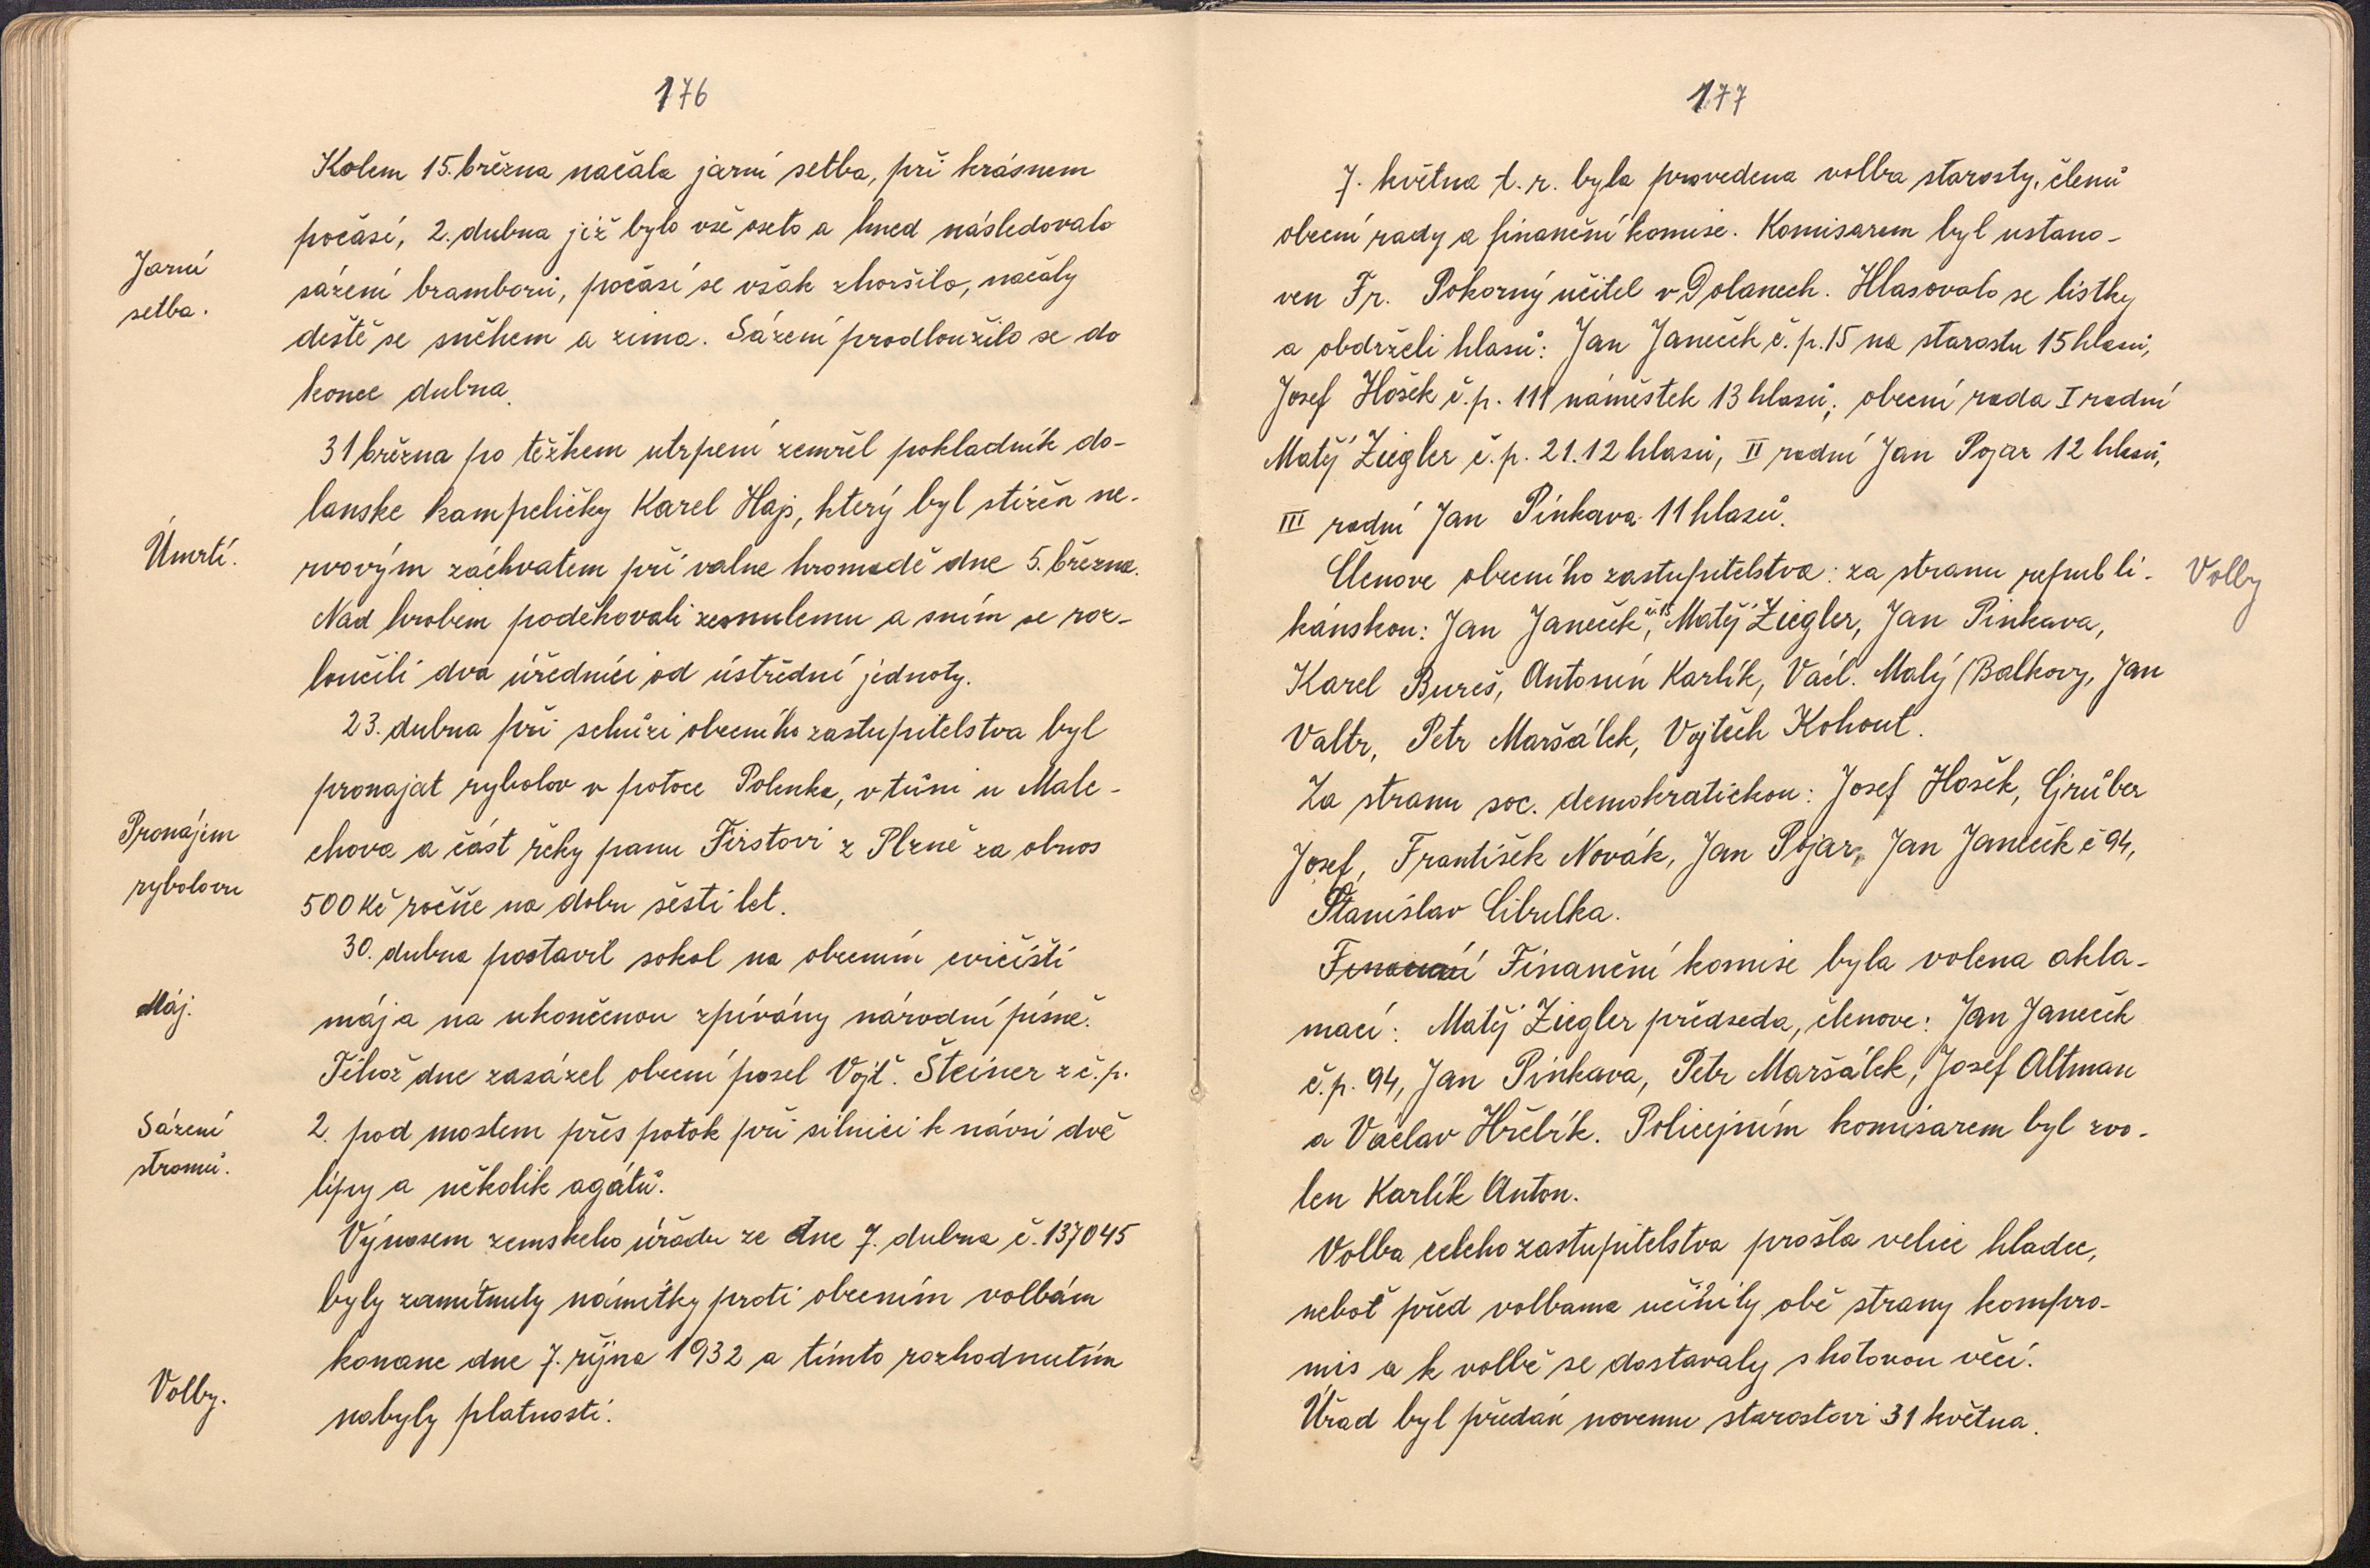 176
Kolem 15. března načala jarní setba, při krásnem
počásí, 2. dubna již bylo vše oseto a hned následovalo
Jarní
setba.
sázení bramborů, počásí se však zhoršilo, načaly
deště se sněhem a zima. Sázení prodloužilo se do
konce dubna.
31 března po těžkem utrpení zemřel pokladník do-
lanske kampeličky Karel Hajs, který byl stižěn ne-
Úmrtí.
rvovým záchvatem při valne hromadě dne 5. března.
Nad hrobem poděkovali zesnulemu a sním se roz-
loučili dva úředníci od ústřední jednoty.
23. dubna při schůzi obecního zastupitelstva byl
pronajat rybolov v potoce Polenka, v tůni u Male-
Pronájem
rybolovu
chova a část řeky panu Firstovi z Plzně za obnos
500 Kč ročně na dobu šesti let.
30. dubna postavil sokol na obecním cvičišti
Máj.
mája na ukončenou zpívány národní písně.
Téhož dne zasázel obecní posel Vojť. Šteiner z č.p.
Sázení
stromů.
2. pod mostem přes potok při silnici k návsi dvě
lípy a několik agátů.
Výnosem zemskeho úřadu ze dne 7. dubna č. 137045
byly zamítnuty námitky proti obecním volbám
Volby.
konane dne 7. října 1932 a tímto rozhodnutím
nabyly platnosti.
177
7. května t. r. byla provedena volba starosty, členů
obecní rady a finanční komise. Komisarem byl ustano-
ven Fr. Pokorný učitel v Dolanech. Hlasovalo se lístky
a obdrželi hlasů: Jan Janeček č.p. 15 na starostu 15 hlasů,
Josef Hošek č.p. 111 náměstek 13 hlasů; obecní rada I radní
Matěj Ziegler č.p. 21. 12 hlasů, II radní Jan Pojar 12 hlasů,
III radní Jan Pinkava 11 hlasů.
Členove obecního zastupitelstva: za stranu republi- Volby
kánskou: Jan Janeček č. 15, Matěj Ziegler, Jan Pinkava,
Karel Bureš, Antonín Karlík, Václ. Malý (Balkovy, Jan
Valtr, Petr Maršálek, Vojtěch Kohout.
Za stranu soc. demokratickou: Josef Hošek, Grüber
Josef, František Novák, Jan Pojar, Jan Janeček č 94,
Stanislav Cibulka.
Finanční Finanční komise byla volena akla-
mací: Matěj Ziegler předseda, členove: Jan Janeček
č.p. 94, Jan Pinkava, Petr Maršálek, Josef Altman
a Václav Hřebřík. Policejním komisarem byl zvo-
len Karlík Anton.
Volba celeho zastupitelstva prošla velice hladce,
neboť před volbama učinily obě strany kompro-
mis a k volbě se dostavaly s hotovou věcí.
Úřad byl předán novemu starostovi 31 května.